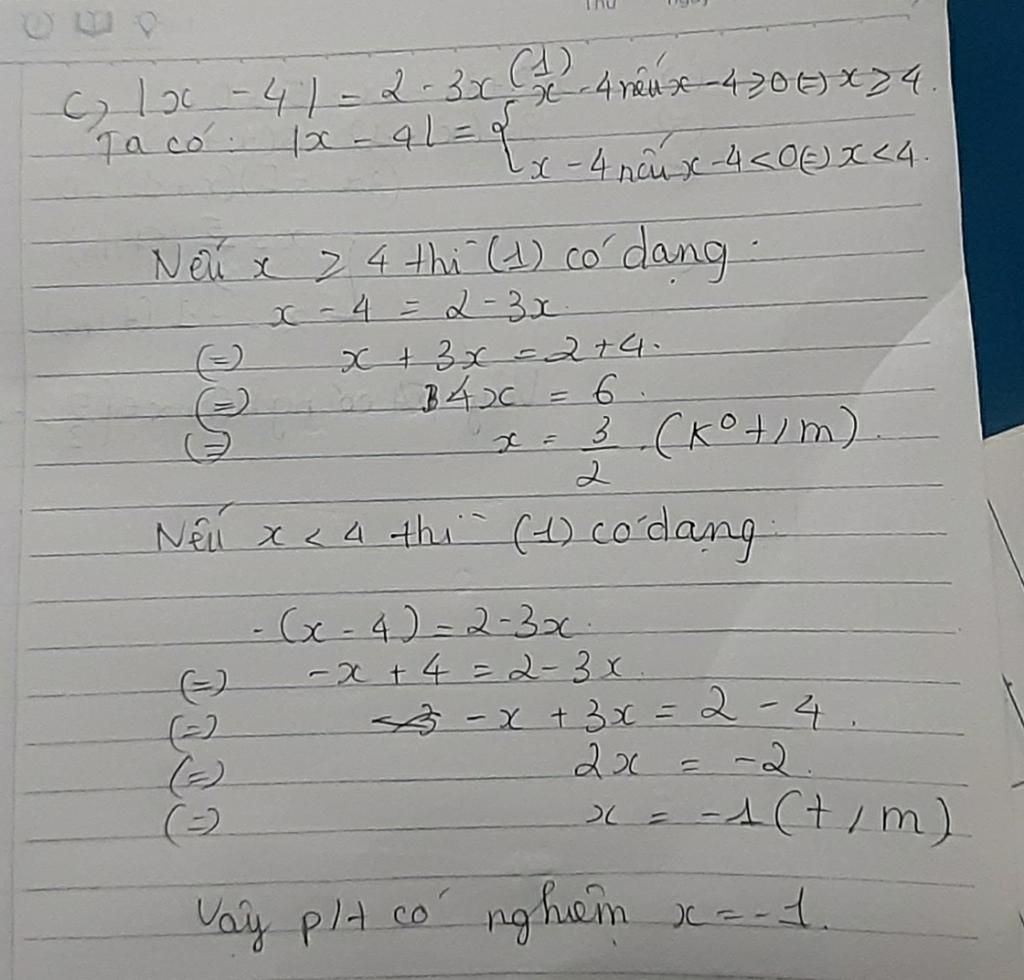 Thứ ngày
c) |x - 4| = 2 - 3x (1)
Ta có: |x - 4| = { x - 4 nếu x - 4 ≥ 0 (=) x ≥ 4.
x - 4 nếu x - 4 < 0 (=) x < 4.
Nếu x ≥ 4 thì (1) có dạng:
x - 4 = 2 - 3x.
(=) x + 3x = 2 + 4.
(=) 4x = 6.
(=) x = 3/2 (k° t/m).
Nếu x < 4 thì (1) có dạng:
-(x - 4) = 2 - 3x.
(=) -x + 4 = 2 - 3x.
(=) -x + 3x = 2 - 4.
(=) 2x = -2.
(=) x = -1 (t/m)
Vậy p/t có nghiệm x = -1.